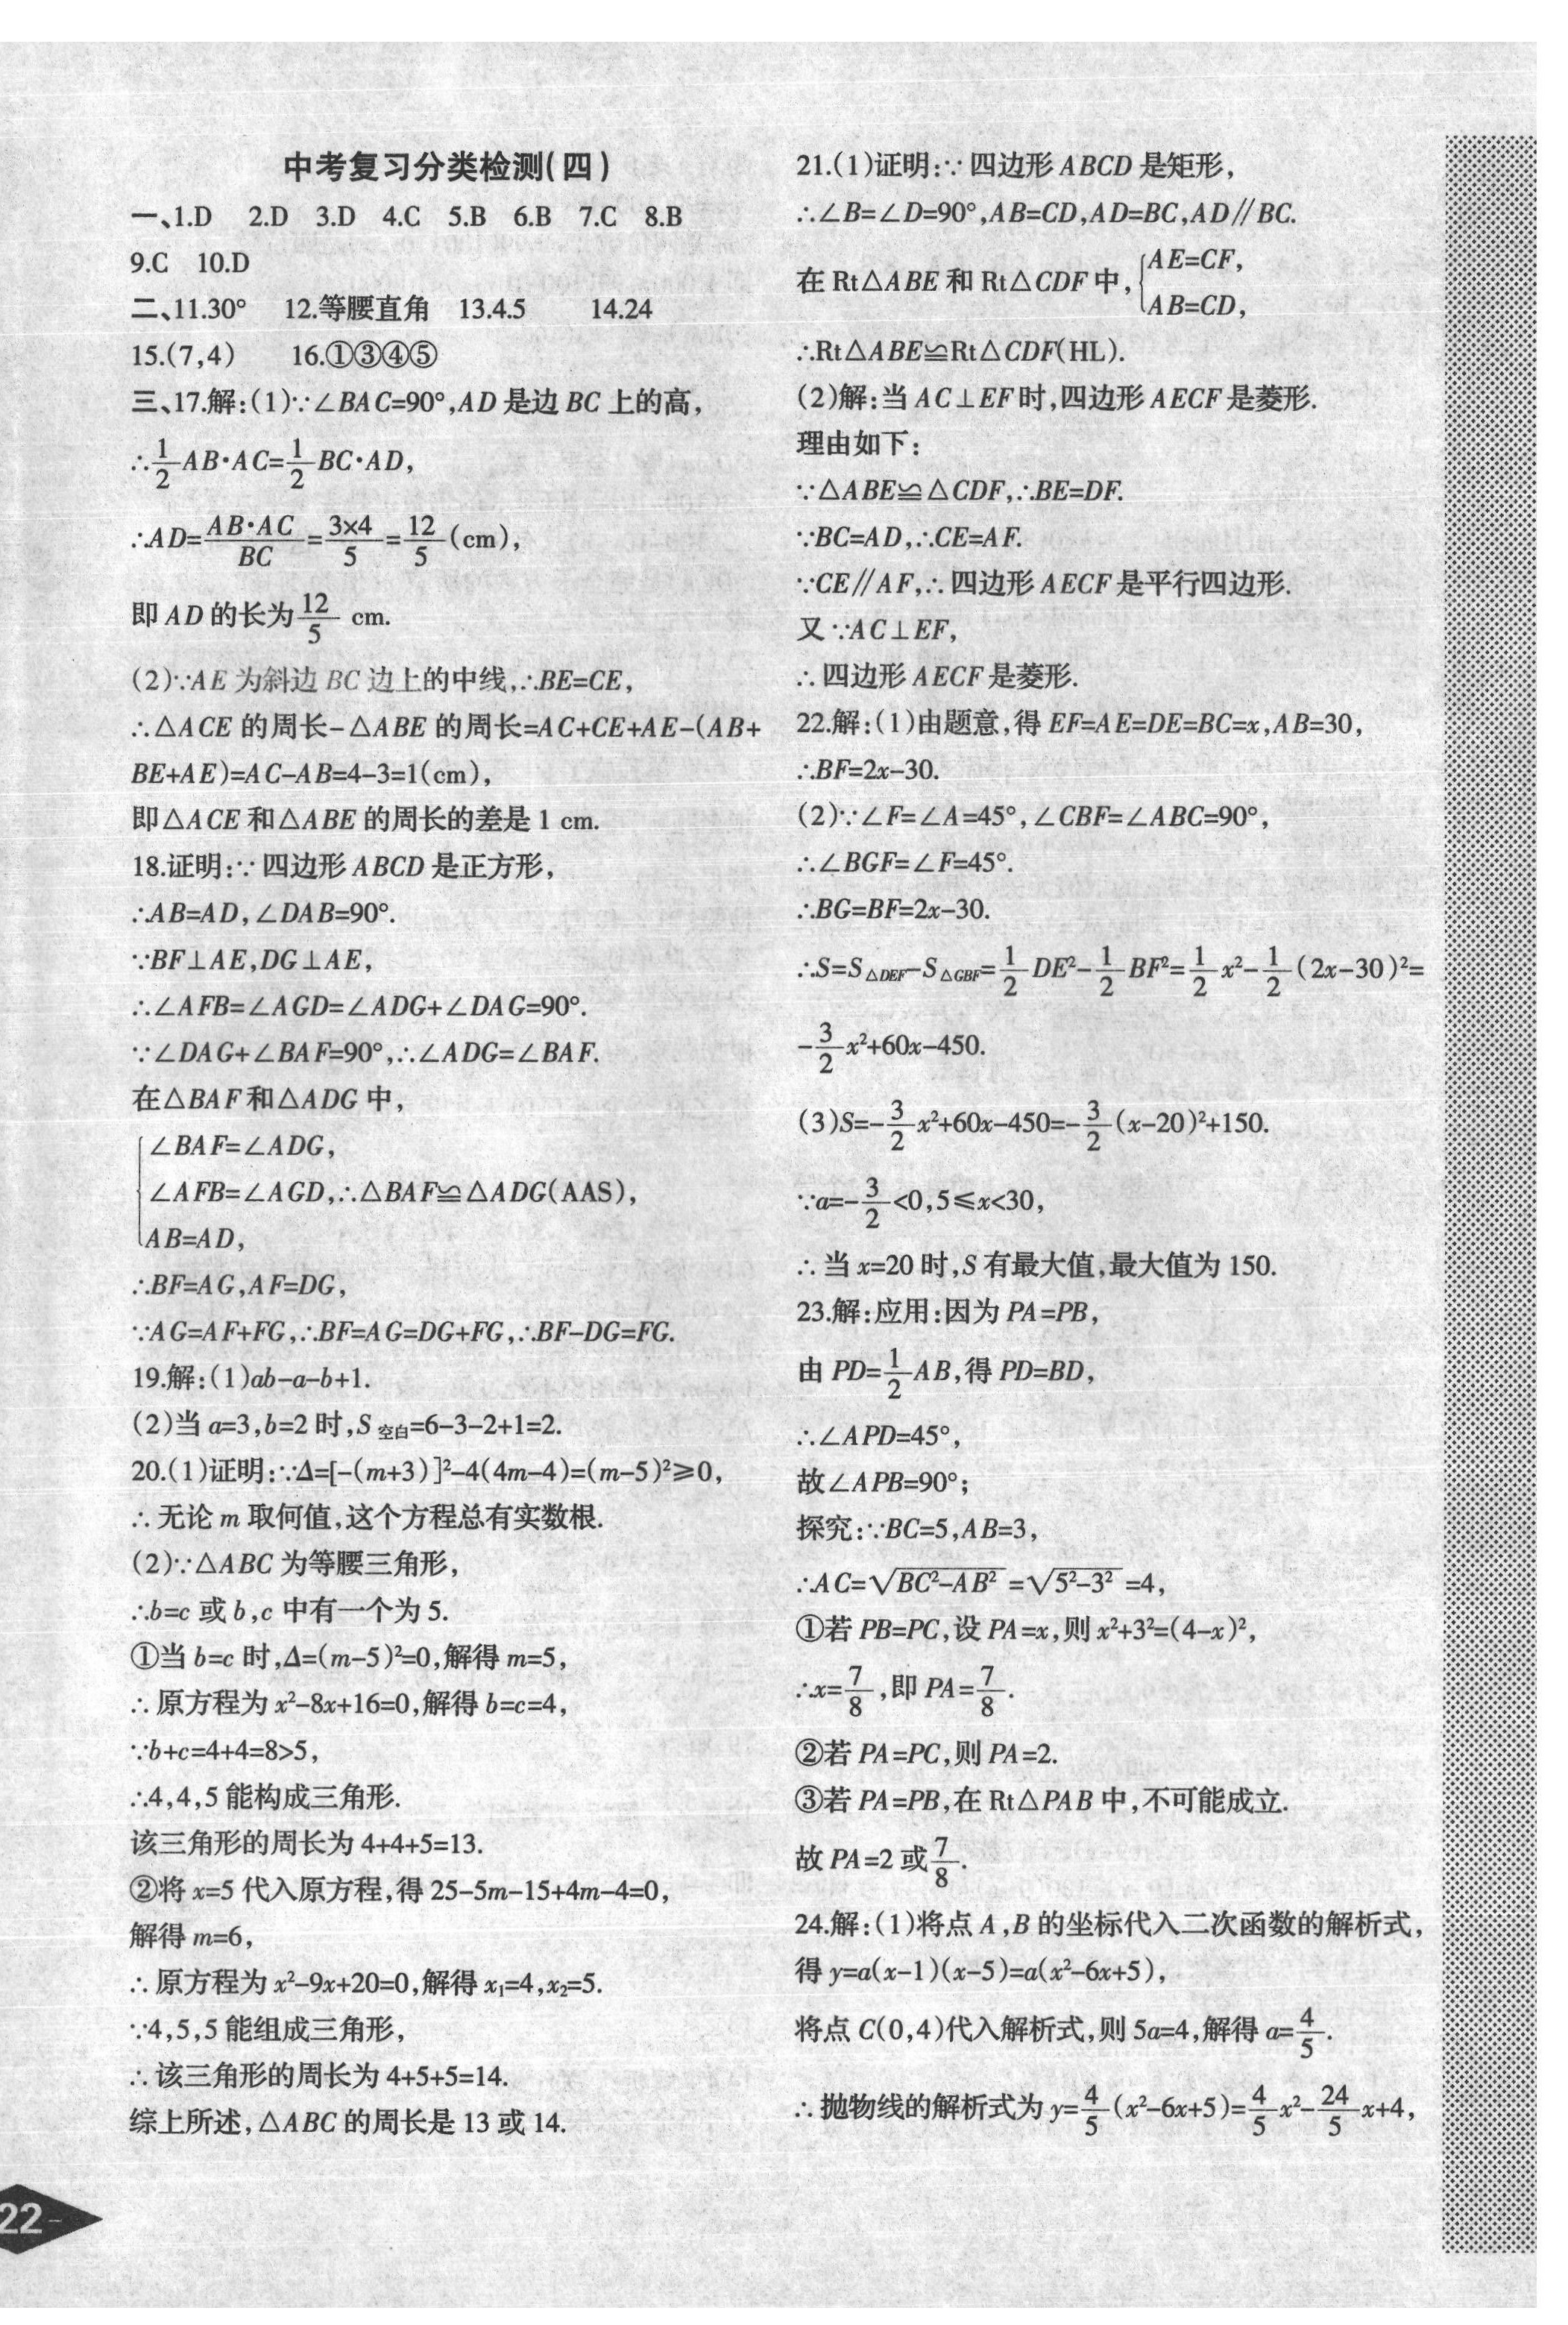 中考复习分类检测(四)
一、1.D 2.D 3.D 4.C 5.B 6.B 7.C 8.B
9.C 10.D
二、11.30° 12.等腰直角 13.4.5 14.24
15.(7,4) 16.①③④⑤
三、17.解:(1)∵∠BAC=90°,AD是边BC上的高,
∴1/2AB·AC=1/2BC·AD,
∴AD=AB·AC/BC=3×4/5=12/5(cm),
即AD的长为12/5 cm.
(2)∵AE为斜边BC边上的中线,∴BE=CE,
∴△ACE的周长-△ABE的周长=AC+CE+AE-(AB+
BE+AE)=AC-AB=4-3=1(cm),
即△ACE和△ABE的周长的差是1 cm.
18.证明:∵四边形ABCD是正方形,
∴AB=AD,∠DAB=90°.
∵BF⊥AE,DG⊥AE,
∴∠AFB=∠AGD=∠ADG+∠DAG=90°.
∵∠DAG+∠BAF=90°,∴∠ADG=∠BAF.
在△BAF和△ADG中,
∠BAF=∠ADG,
∠AFB=∠AGD,∴△BAF≌△ADG(AAS),
AB=AD,
∴BF=AG,AF=DG,
∵AG=AF+FG,∴BF=AG=DG+FG,∴BF-DG=FG.
19.解:(1)ab-a-b+1.
(2)当a=3,b=2时,S空白=6-3-2+1=2.
20.(1)证明:∵Δ=[-(m+3)]²-4(4m-4)=(m-5)²≥0,
∴无论m取何值,这个方程总有实数根.
(2)∵△ABC为等腰三角形,
∴b=c或b,c中有一个为5.
①当b=c时,Δ=(m-5)²=0,解得m=5,
∴原方程为x²-8x+16=0,解得b=c=4,
∵b+c=4+4=8>5,
∴4,4,5能构成三角形.
该三角形的周长为4+4+5=13.
②将x=5代入原方程,得25-5m-15+4m-4=0,
解得m=6,
∴原方程为x²-9x+20=0,解得x₁=4,x₂=5.
∵4,5,5能组成三角形,
∴该三角形的周长为4+5+5=14.
综上所述,△ABC的周长是13或14.
22-
21.(1)证明:∵四边形ABCD是矩形,
∴∠B=∠D=90°,AB=CD,AD=BC,AD∥BC.
在Rt△ABE和Rt△CDF中,{AE=CF,
AB=CD,
∴Rt△ABE≌Rt△CDF(HL).
(2)解:当AC⊥EF时,四边形AECF是菱形.
理由如下:
∵△ABE≌△CDF,∴BE=DF.
∵BC=AD,∴CE=AF.
∵CE∥AF,∴四边形AECF是平行四边形.
又∵AC⊥EF,
∴四边形AECF是菱形.
22.解:(1)由题意,得EF=AE=DE=BC=x,AB=30,
∴BF=2x-30.
(2)∵∠F=∠A=45°,∠CBF=∠ABC=90°,
∴∠BGF=∠F=45°.
∴BG=BF=2x-30.
∴S=S△DEF-S△GBF=1/2DE²-1/2BF²=1/2x²-1/2(2x-30)²=
-3/2x²+60x-450.
(3)S=-3/2x²+60x-450=-3/2(x-20)²+150.
∵a=-3/2<0,5≤x<30,
∴当x=20时,S有最大值,最大值为150.
23.解:应用:因为PA=PB,
由PD=1/2AB,得PD=BD,
∴∠APD=45°,
故∠APB=90°;
探究:∵BC=5,AB=3,
∴AC=√(BC²-AB²)=√(5²-3²)=4,
①若PB=PC,设PA=x,则x²+3²=(4-x)²,
∴x=7/8,即PA=7/8.
②若PA=PC,则PA=2.
③若PA=PB,在Rt△PAB中,不可能成立.
故PA=2或7/8.
24.解:(1)将点A,B的坐标代入二次函数的解析式,
得y=a(x-1)(x-5)=a(x²-6x+5),
将点C(0,4)代入解析式,则5a=4,解得a=4/5.
∴抛物线的解析式为y=4/5(x²-6x+5)=4/5x²-24/5x+4,